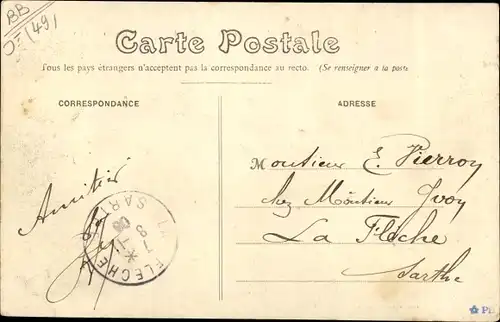 BB
Carte Postale
Tous les pays étrangers n'acceptent pas la correspondance au recto. (Se renseigner à la poste
CORRESPONDANCE
ADRESSE
Monsieur E. Pierroy
chez Monsieur Yvon
La Flèche
Sarthe
Amitiés
LA FLECHE * SARTHE